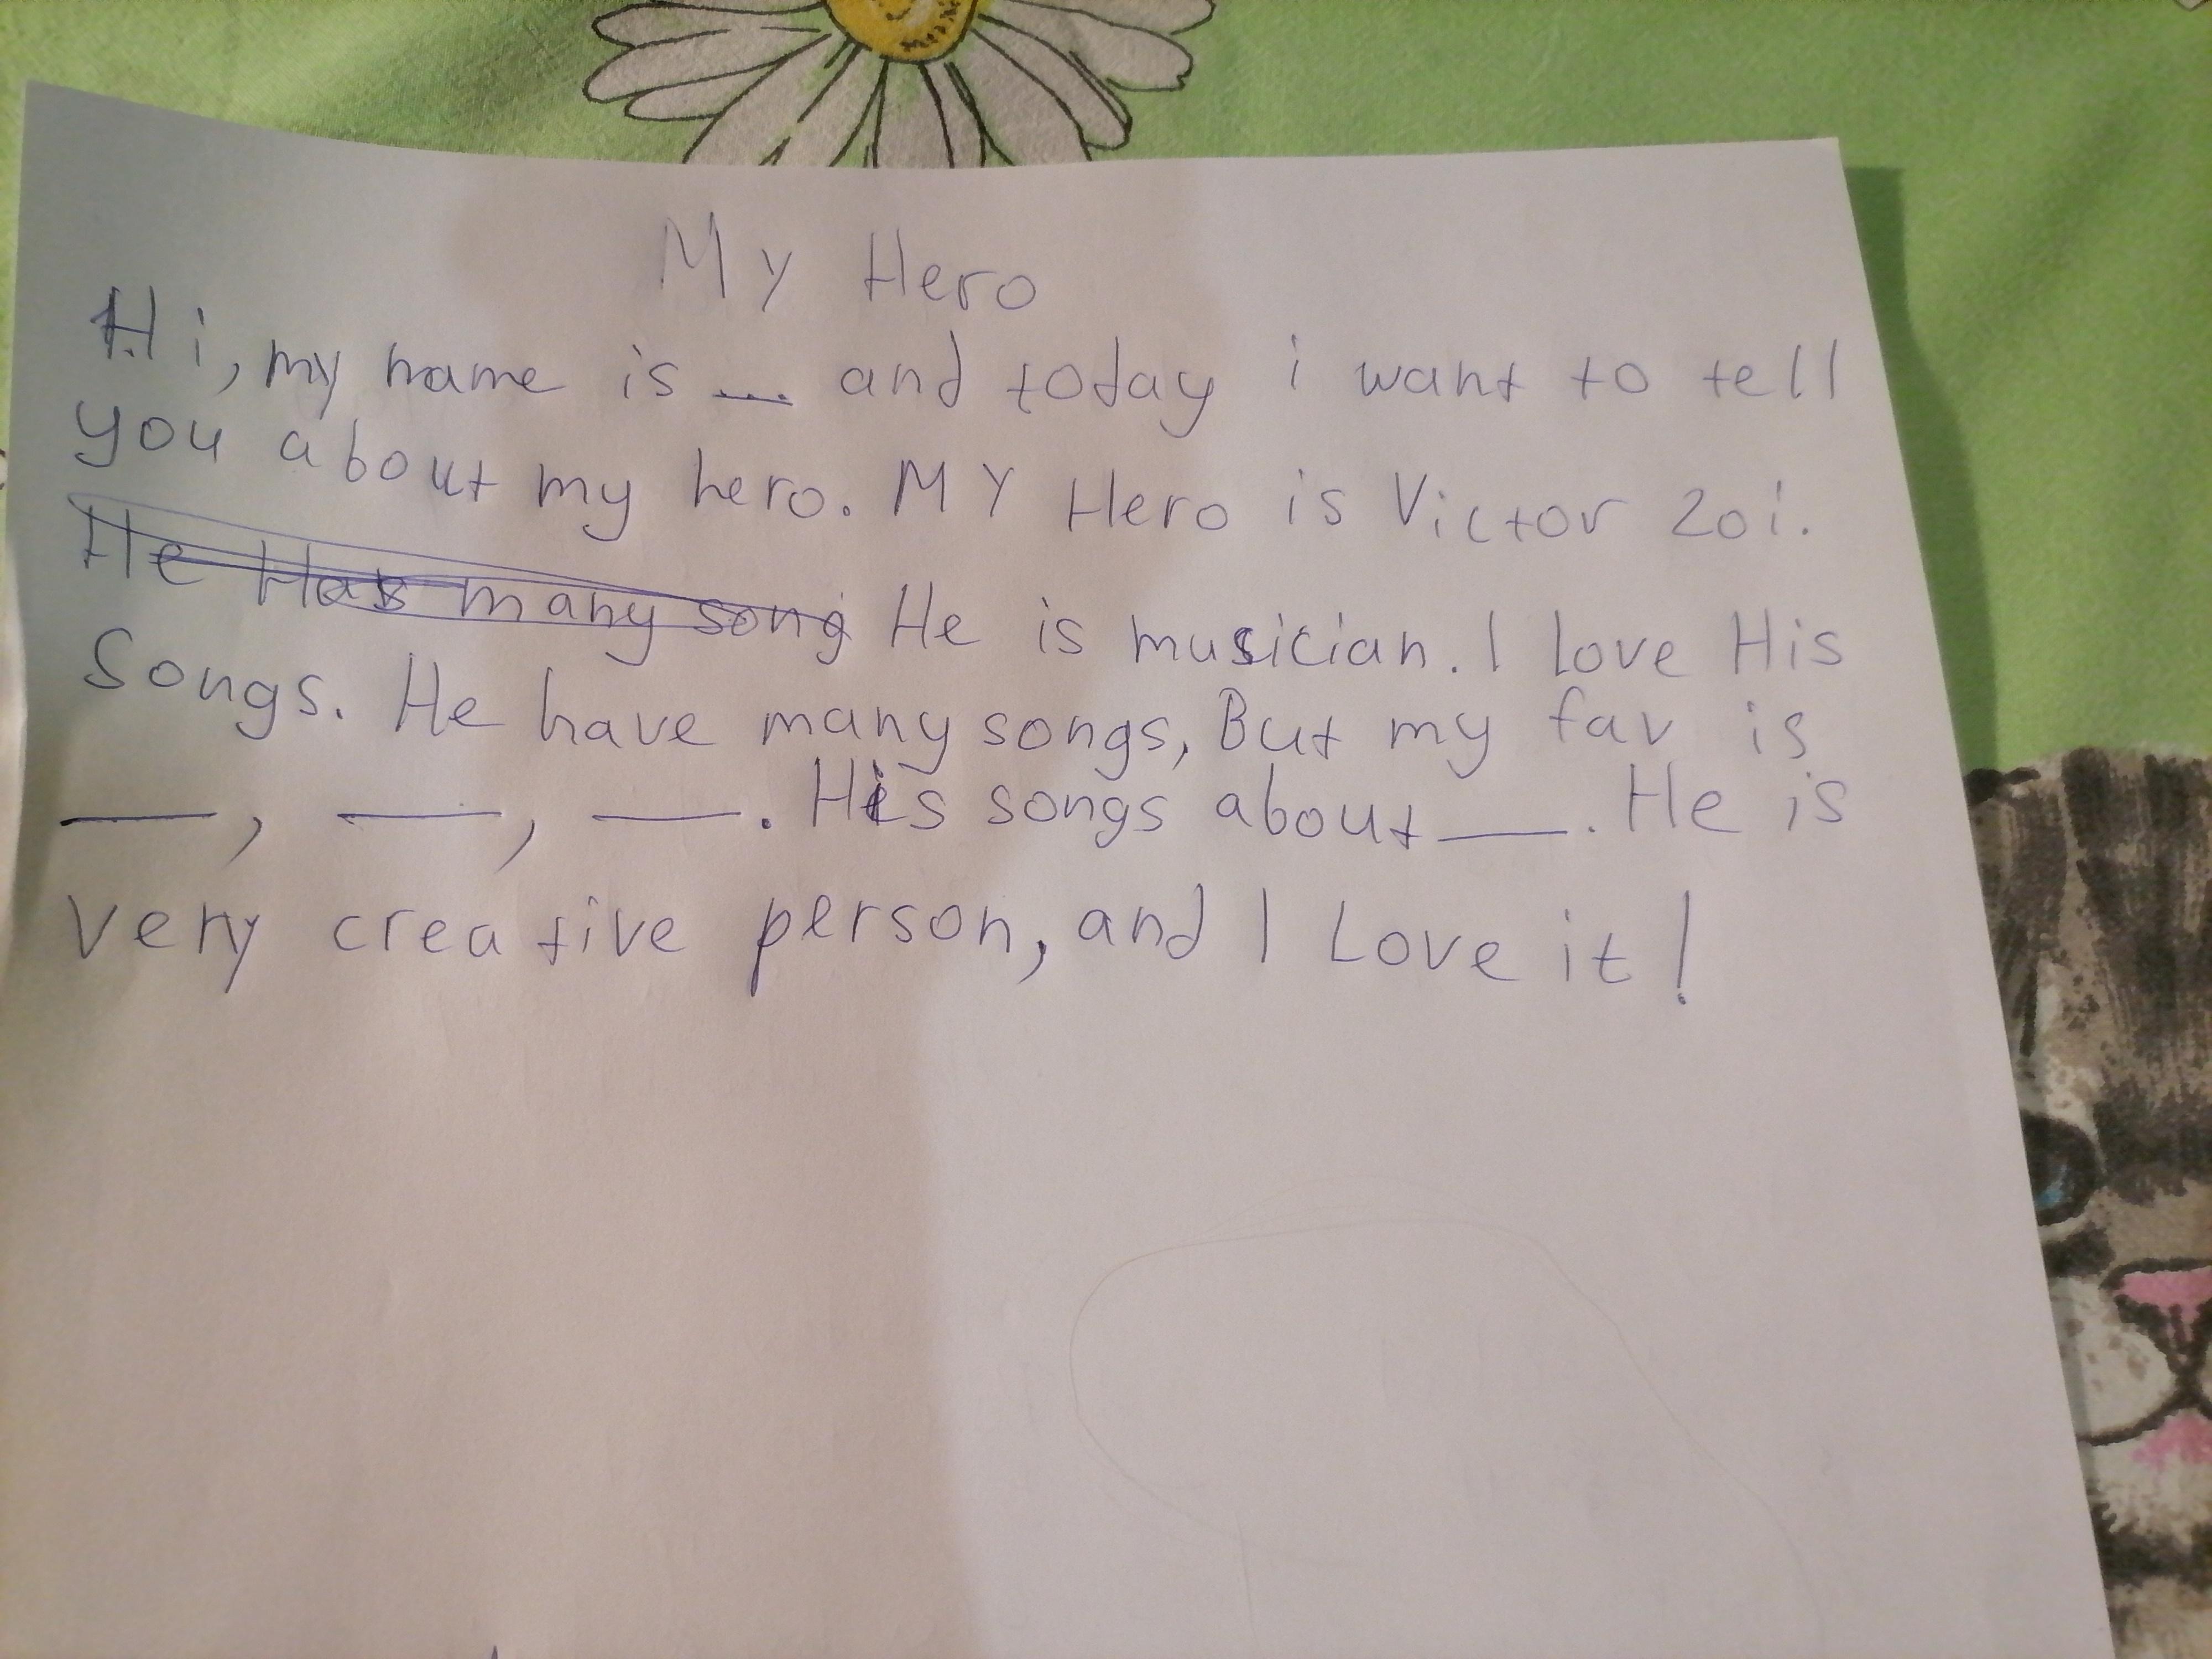 My Hero
Hi, my name is ... and today i want to tell
you about my hero. MY Hero is Victor Zoi.
He Has many song He is musician. I love His
Songs. He have many songs, But my fav is
___, ___, ___. His songs about ___. He is
very creative person, and I Love it!